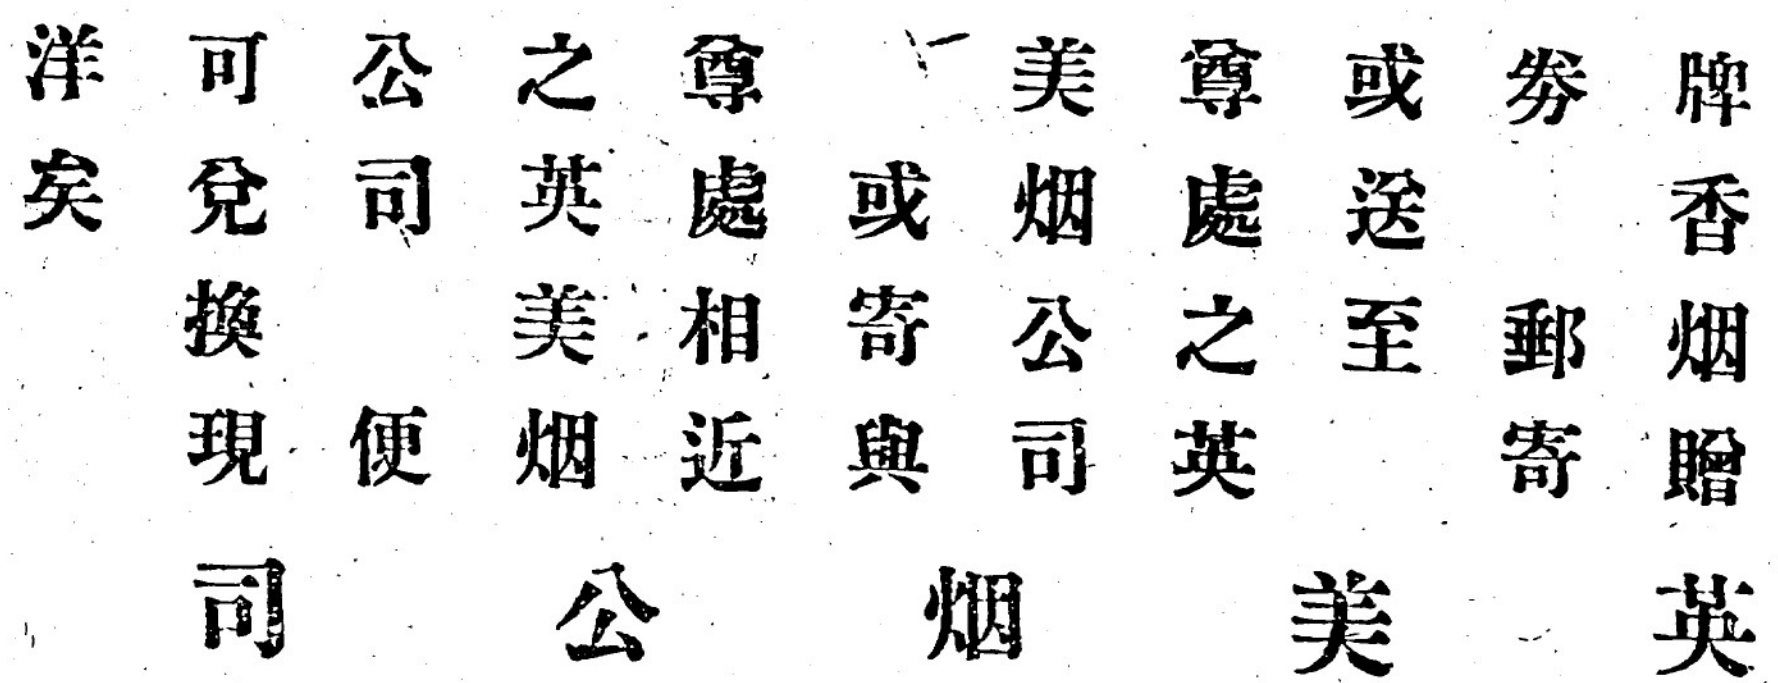 牌香烟贈
劵 郵寄
或送至
尊處之英
美烟公司
或寄與
尊處相近
之英美烟
公司 便
可兌換現
洋矣
英美烟公司